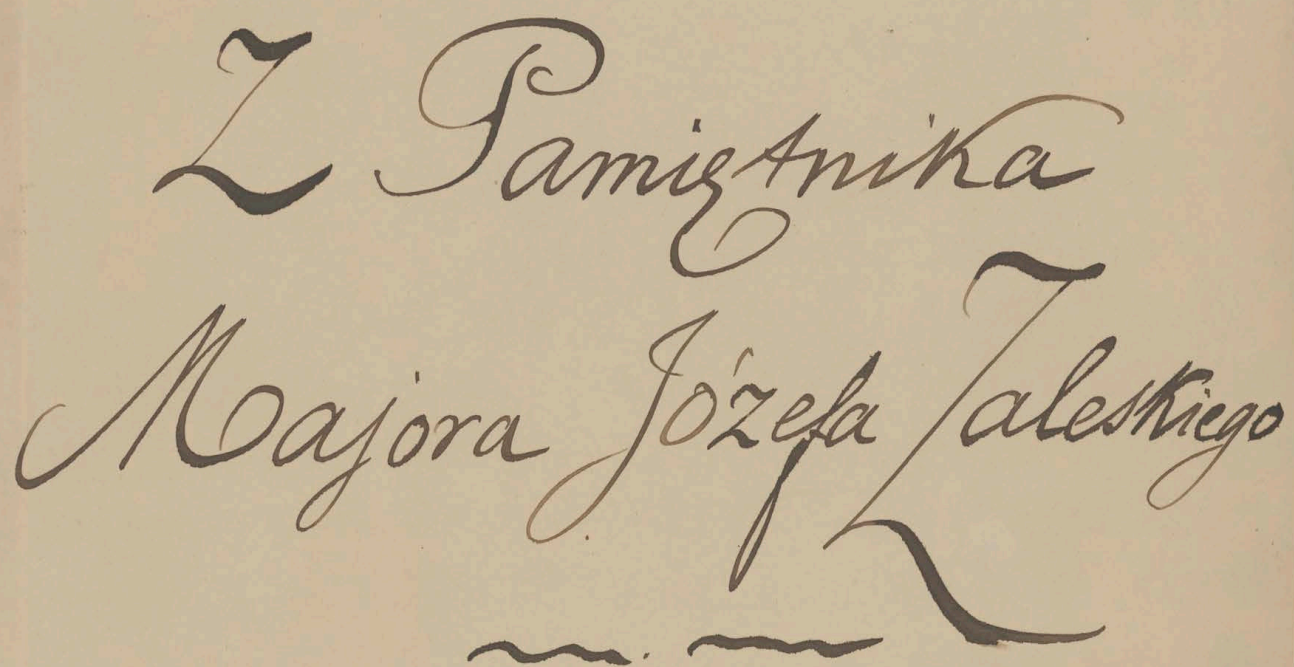 Z Pamiętnika
Majora Józefa Zaleskiego